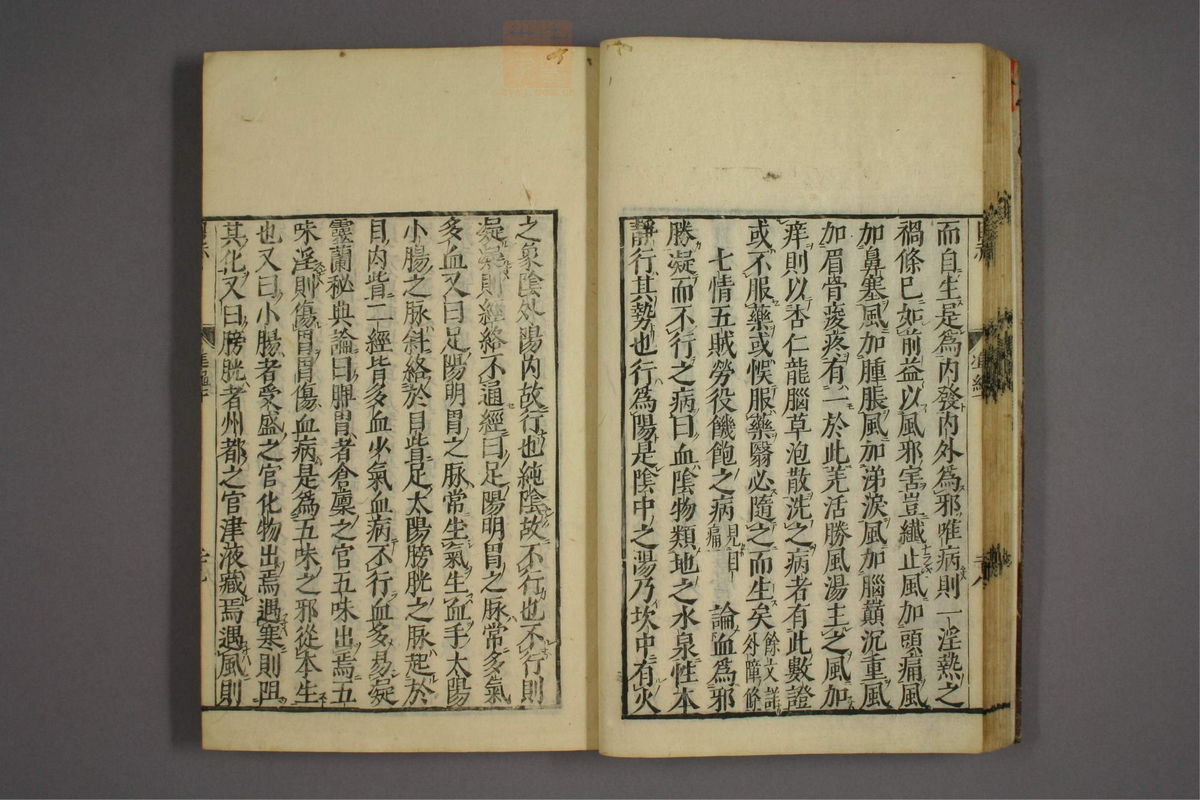 而自生是爲内發内外爲邪唯病則一淫熱之
禍條已如前益以風邪害豈纖止風加頭痛風
加鼻塞風加腫脹風加涕淚風加腦巔沉重風
加眉骨痠疼有一於此羌活勝風湯主之風加
痒則以杏仁龍腦草泡散洗之病者有此數證
或不服藥或悞服藥翳必隨之而生矣餘文詳外障條
七情五賊勞役饑飽之病見目痛 論血爲邪
勝凝而不行之病曰血陰物類地之水泉性本
靜行其勢也行爲陽是陰中之陽乃坎中有火
之象陰外陽内故行也純陰故不行也不行則
凝凝則經絡不通經曰足陽明胃之脉常多氣
多血又曰足陽明胃之脉常生氣生血手太陽
小腸之脉斜絡於目眥足太陽膀胱之脉起於
目内眥二經皆多血少氣血病不行血多易凝
靈蘭秘典論曰脾胃者倉廩之官五味出焉五
味淫則傷胃胃傷血病是爲五味之邪從本生
也又曰小腸者受盛之官化物出焉遇寒則阻
其化又曰膀胱者州都之官津液藏焉遇風則